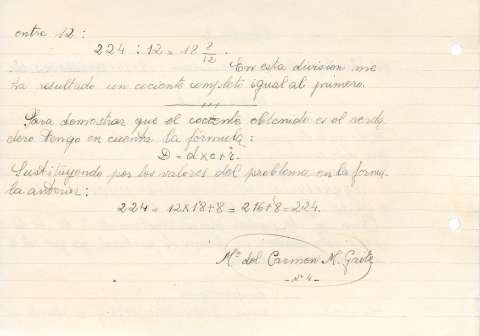 entre 12:
224 : 12 = 18 8/12.
En esta division me
ha resultado un cociente completo igual al primero.
Para demostrar que el cociente obtenido es el verda
dero tengo en cuenta la fórmula:
D = d x c + r.
Sustituyendo por los valores del problema en la formu
la anterior:
224 = 12 x 18 + 8 = 216 + 8 = 224.
Mª del Carmen M. Gaite
-nº 4-